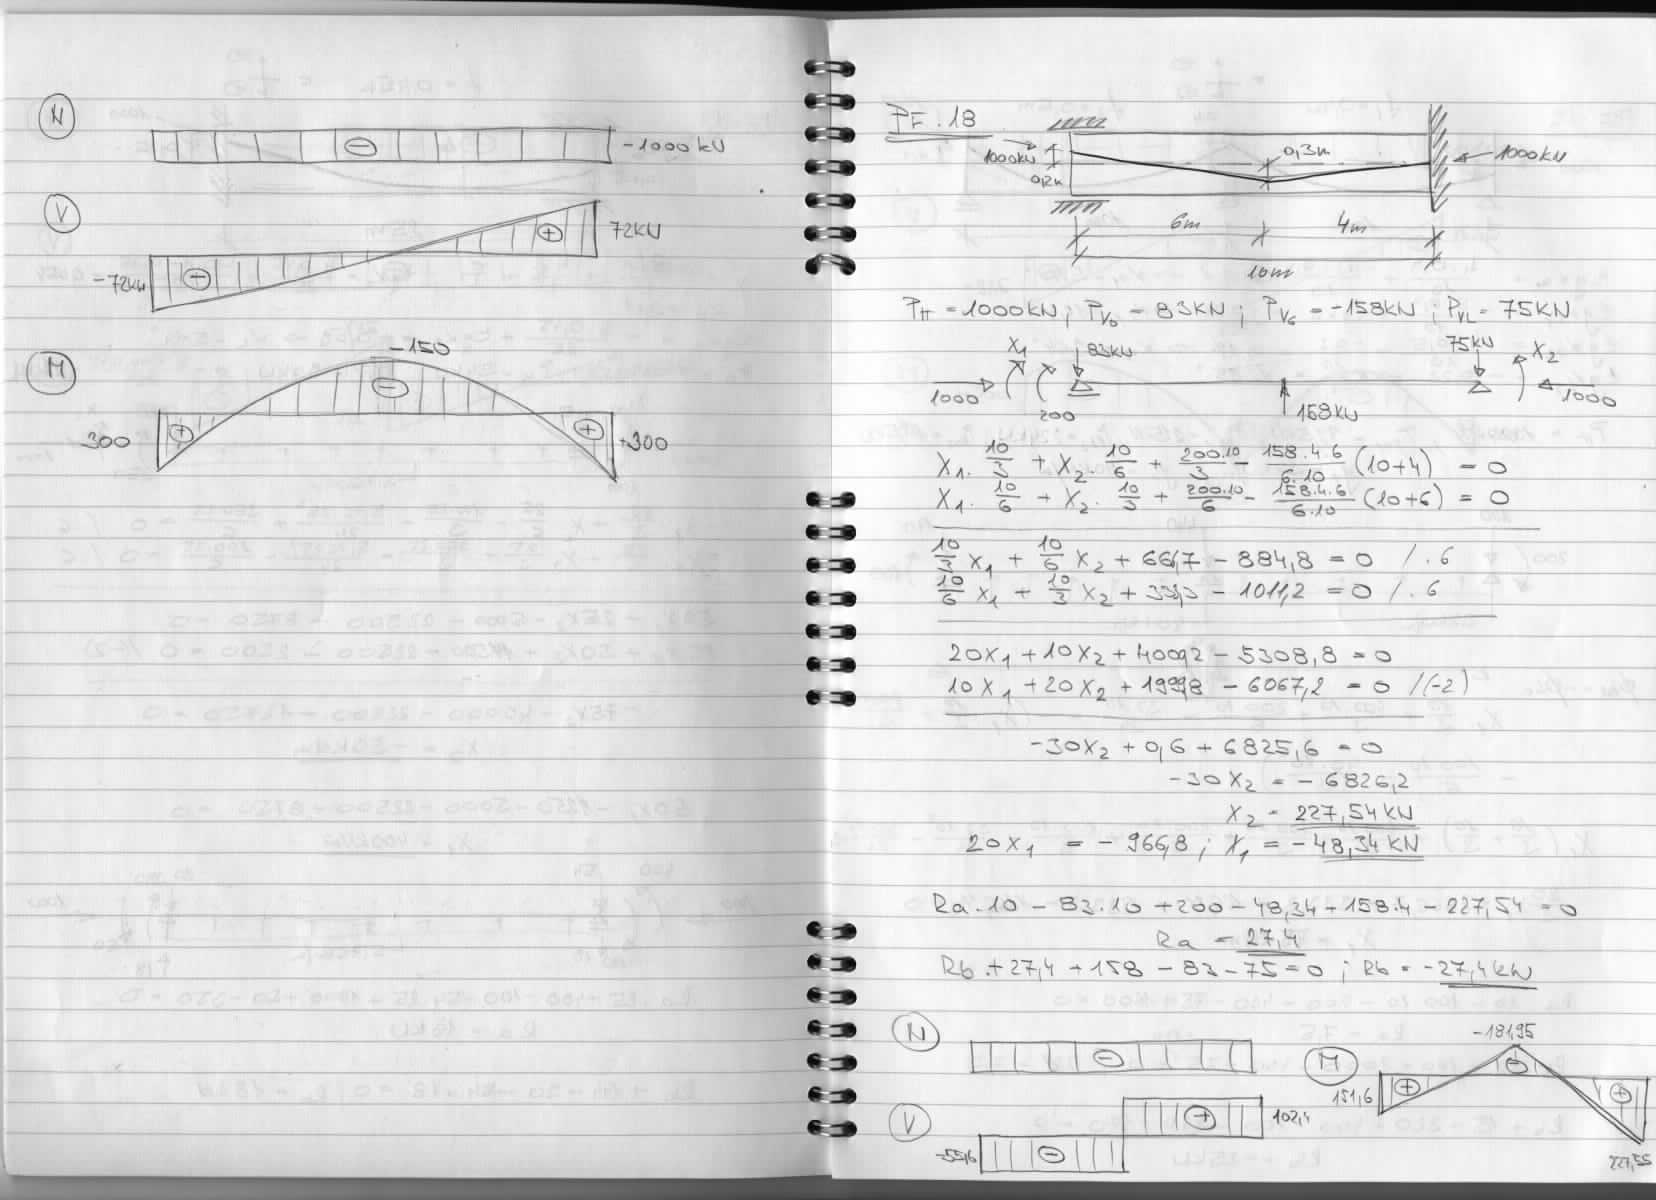 N
-1000 kN
V
72KN
-72KN
+
+
M
-150
-
300
+
+
+300
PŘ. 18
1000KN
0,2m
0,3m
1000KN
6m
4m
10m
PH = 1000KN ; PV0 = 83KN ; PV6 = -158KN ; PVL = 75KN
X1
83KN
75KN
X2
1000
200
158KN
1000
X1 . 10/3 + X2 . 10/6 + 200.10/3 - 158.4.6/6.10 (10+4) = 0
X1 . 10/6 + X2 . 10/3 + 200.10/6 - 158.4.6/6.10 (10+6) = 0
10/3 X1 + 10/6 X2 + 666,7 - 884,8 = 0 / . 6
10/6 X1 + 10/3 X2 + 333,3 - 1011,2 = 0 / . 6
20X1 + 10X2 + 4000,2 - 5308,8 = 0
10X1 + 20X2 + 1999,8 - 6067,2 = 0 /(-2)
-30X2 + 0,6 + 6825,6 = 0
-30X2 = - 6826,2
X2 = 227,54 KN
20X1 = - 966,8 ; X1 = - 48,34 KN
Ra . 10 - 83.10 + 200 - 48,34 + 158.4 - 227,54 = 0
Ra = 27,4
Rb + 27,4 + 158 - 83 - 75 = 0 ; Rb = -27,4 KN
N
-
V
-55,6
-
+
102,4
M
-181,95
151,6
+
-
+
227,55